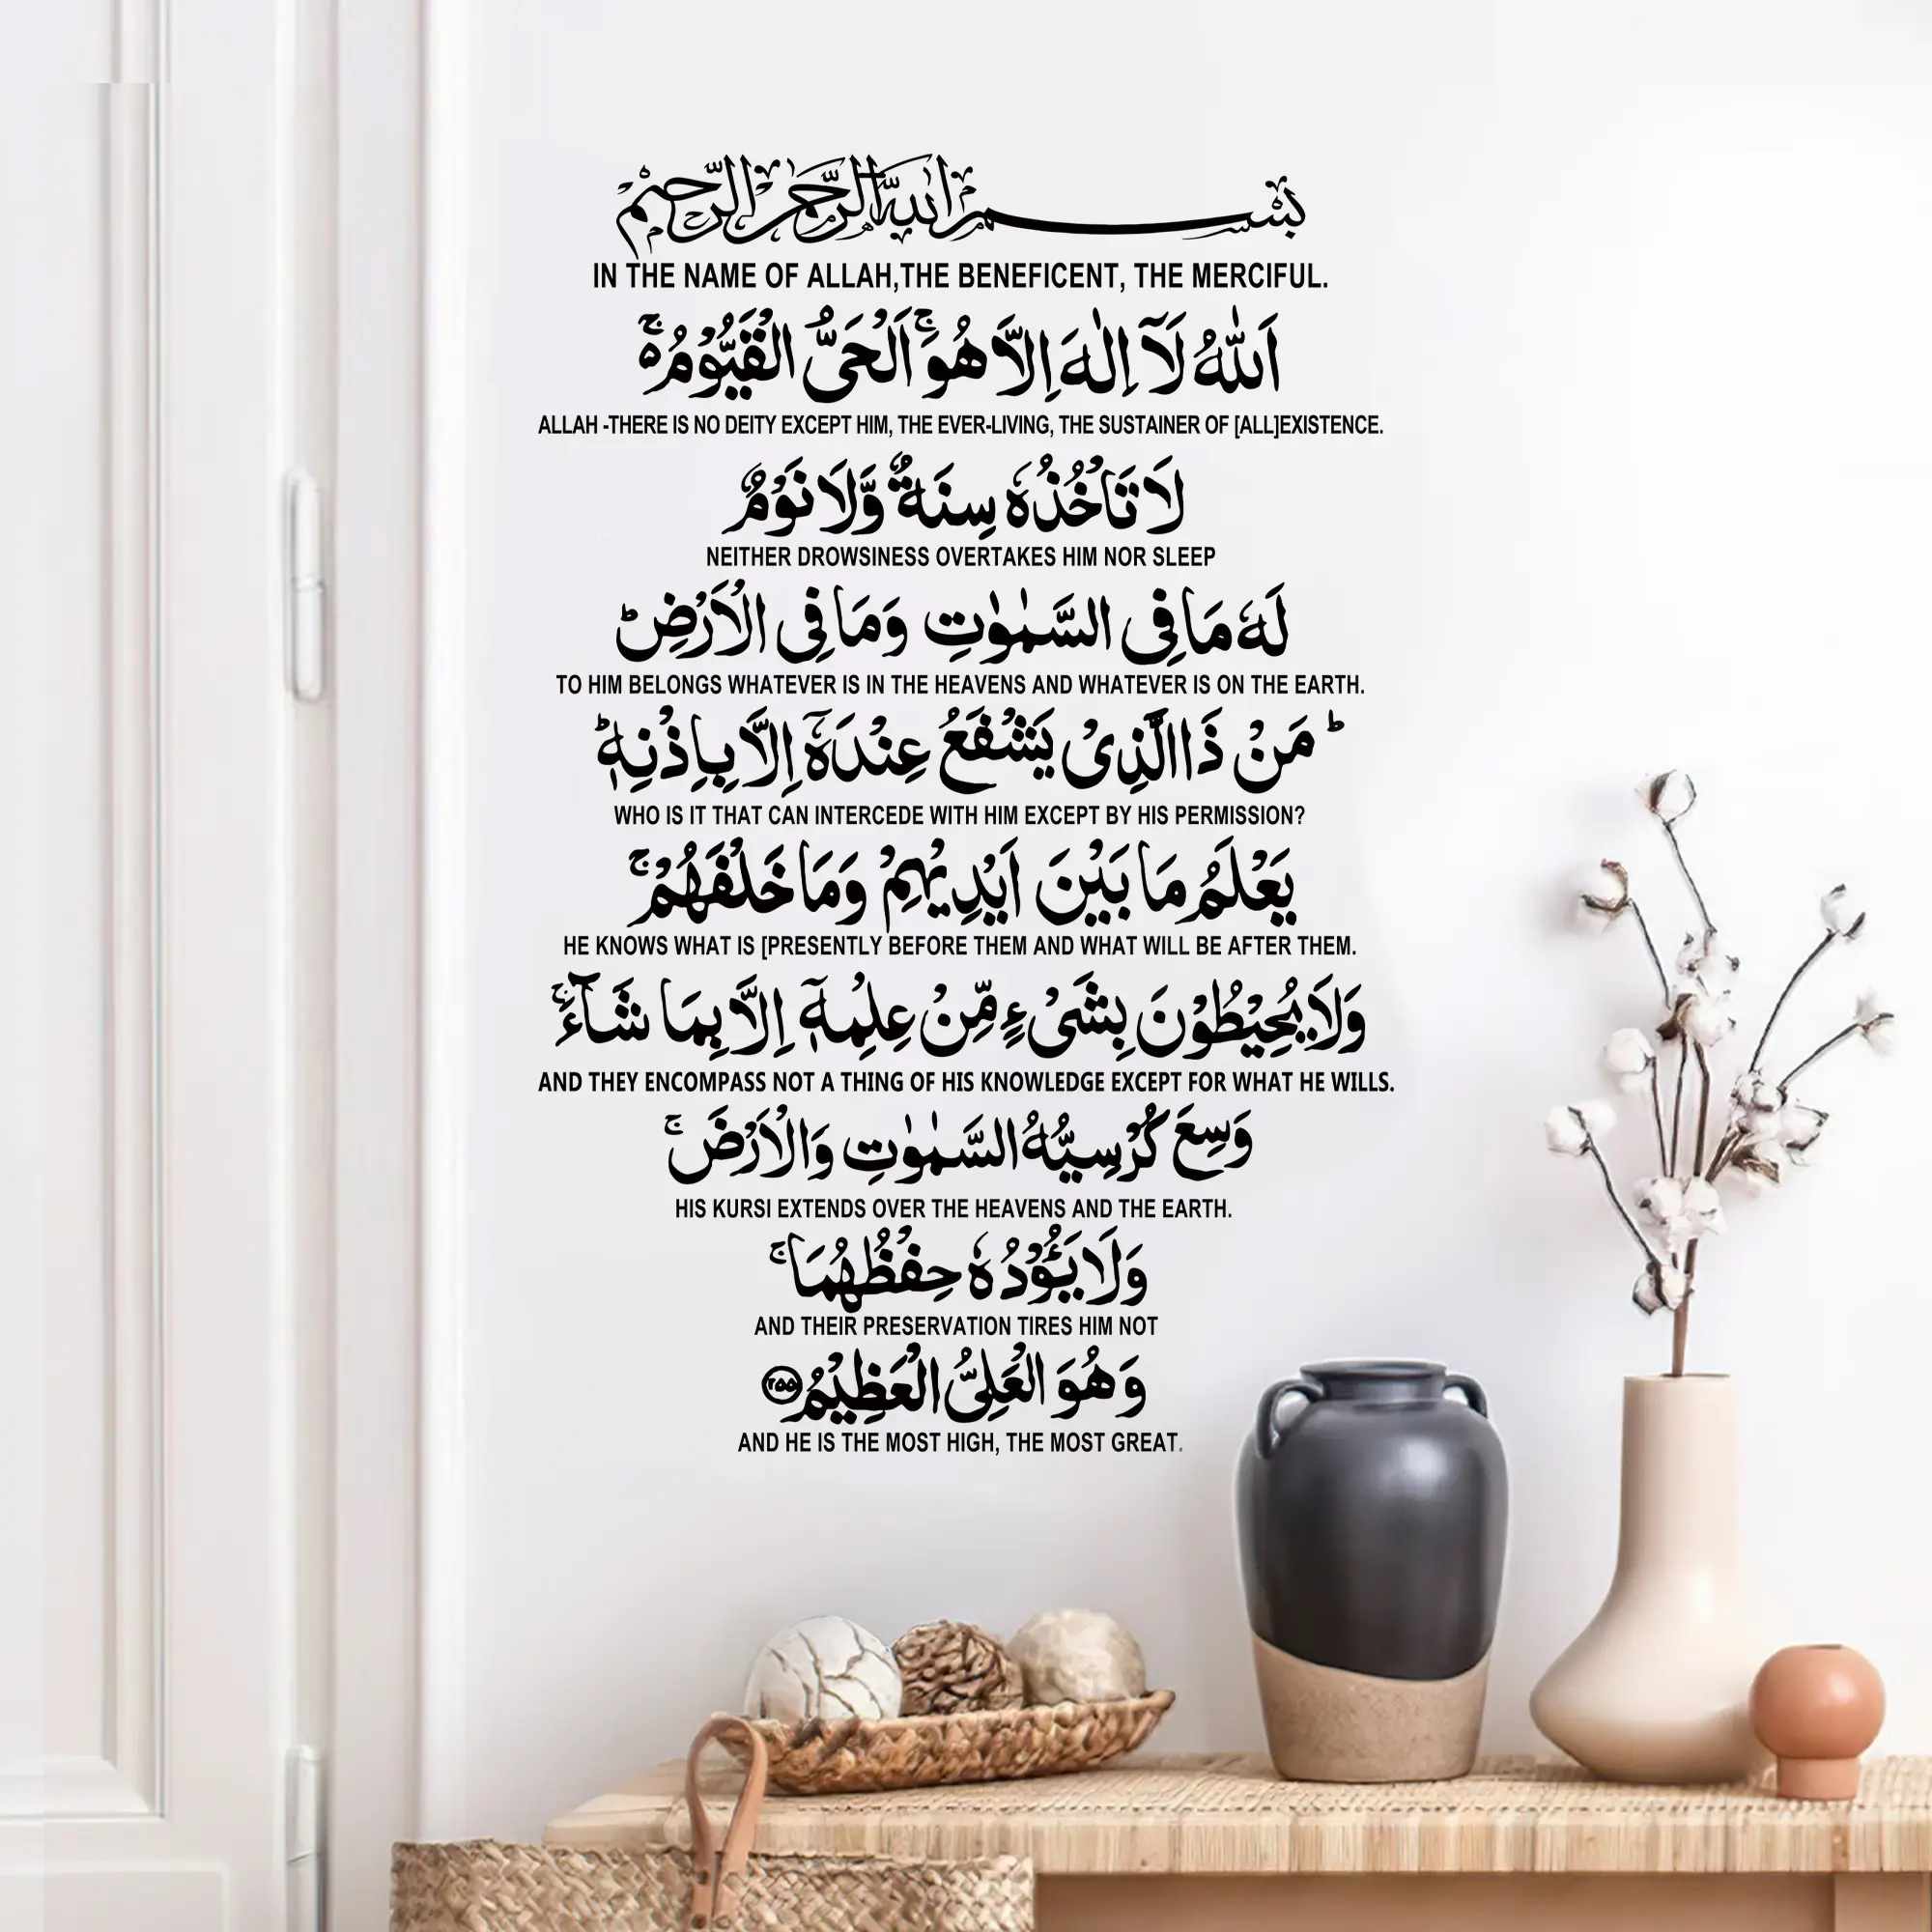 بِسْمِ اللهِ الرَّحْمٰنِ الرَّحِيْمِ
IN THE NAME OF ALLAH,THE BENEFICENT, THE MERCIFUL.
اَللّٰهُ لَآ اِلٰهَ اِلَّا هُوَۚ اَلْحَىُّ الْقَيُّوْمُ ەۚ
ALLAH -THERE IS NO DEITY EXCEPT HIM, THE EVER-LIVING, THE SUSTAINER OF [ALL]EXISTENCE.
لَا تَاْخُذُهٗ سِنَةٌ وَّلَا نَوْمٌ
NEITHER DROWSINESS OVERTAKES HIM NOR SLEEP
لَهٗ مَا فِى السَّمٰوٰتِ وَمَا فِى الْاَرْضِؕ
TO HIM BELONGS WHATEVER IS IN THE HEAVENS AND WHATEVER IS ON THE EARTH.
ؕ مَنْ ذَا الَّذِىْ يَشْفَعُ عِنْدَهٗۤ اِلَّا بِاِذْنِهٖؕ
WHO IS IT THAT CAN INTERCEDE WITH HIM EXCEPT BY HIS PERMISSION?
يَعْلَمُ مَا بَيْنَ اَيْدِيْهِمْ وَمَا خَلْفَهُمْۚ
HE KNOWS WHAT IS [PRESENTLY BEFORE THEM AND WHAT WILL BE AFTER THEM.
وَلَا يُحِيْطُوْنَ بِشَىْءٍ مِّنْ عِلْمِهٖۤ اِلَّا بِمَا شَآءَۚ
AND THEY ENCOMPASS NOT A THING OF HIS KNOWLEDGE EXCEPT FOR WHAT HE WILLS.
وَسِعَ كُرْسِيُّهُ السَّمٰوٰتِ وَالْاَرْضَۚ
HIS KURSI EXTENDS OVER THE HEAVENS AND THE EARTH.
وَلَا يَـُٔوْدُهٗ حِفْظُهُمَاۚ
AND THEIR PRESERVATION TIRES HIM NOT
وَهُوَ الْعَلِىُّ الْعَظِيْمُ ٢٥٥
AND HE IS THE MOST HIGH, THE MOST GREAT.